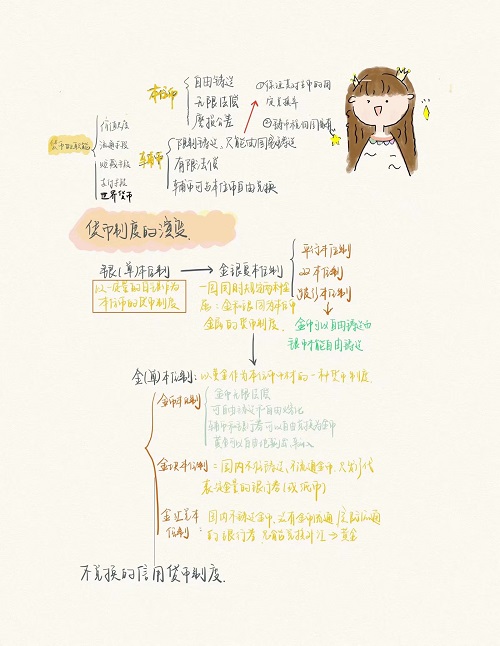 本位币
自由铸造
无限法偿
磨损公差
①保证辅币与主币的固定兑换率
②铸币税归国家所有
货币的职能
价值尺度
流通手段
贮藏手段
支付手段
世界货币
辅币
限制铸造,只能由国家铸造
有限法偿
辅币可与本位币自由兑换
货币制度的演变.
银(单)本位制
金银复本位制
平行本位制
双本位制
跛行本位制
以一定量的白银作为
本位币的货币制度
一国同时规定两种金
属:金和银同为本位币
金属的货币制度.
金币可以自由铸造而
银币不能自由铸造
金(单)本位制:以黄金作为本位币币材的一种货币制度.
金币本位制
金币无限法偿
可自由铸造和自由熔化
辅币和银行券可以自由兑换为金币
黄金可以自由地输出、输入
金块本位制:国内不铸造、不流通金币,只发行代
表一定金量的银行券(或纸币)
金汇兑本
位制:
国内不铸造金币,没有金币流通
的银行券只能兑换外汇→黄金
不兑换的信用货币制度.